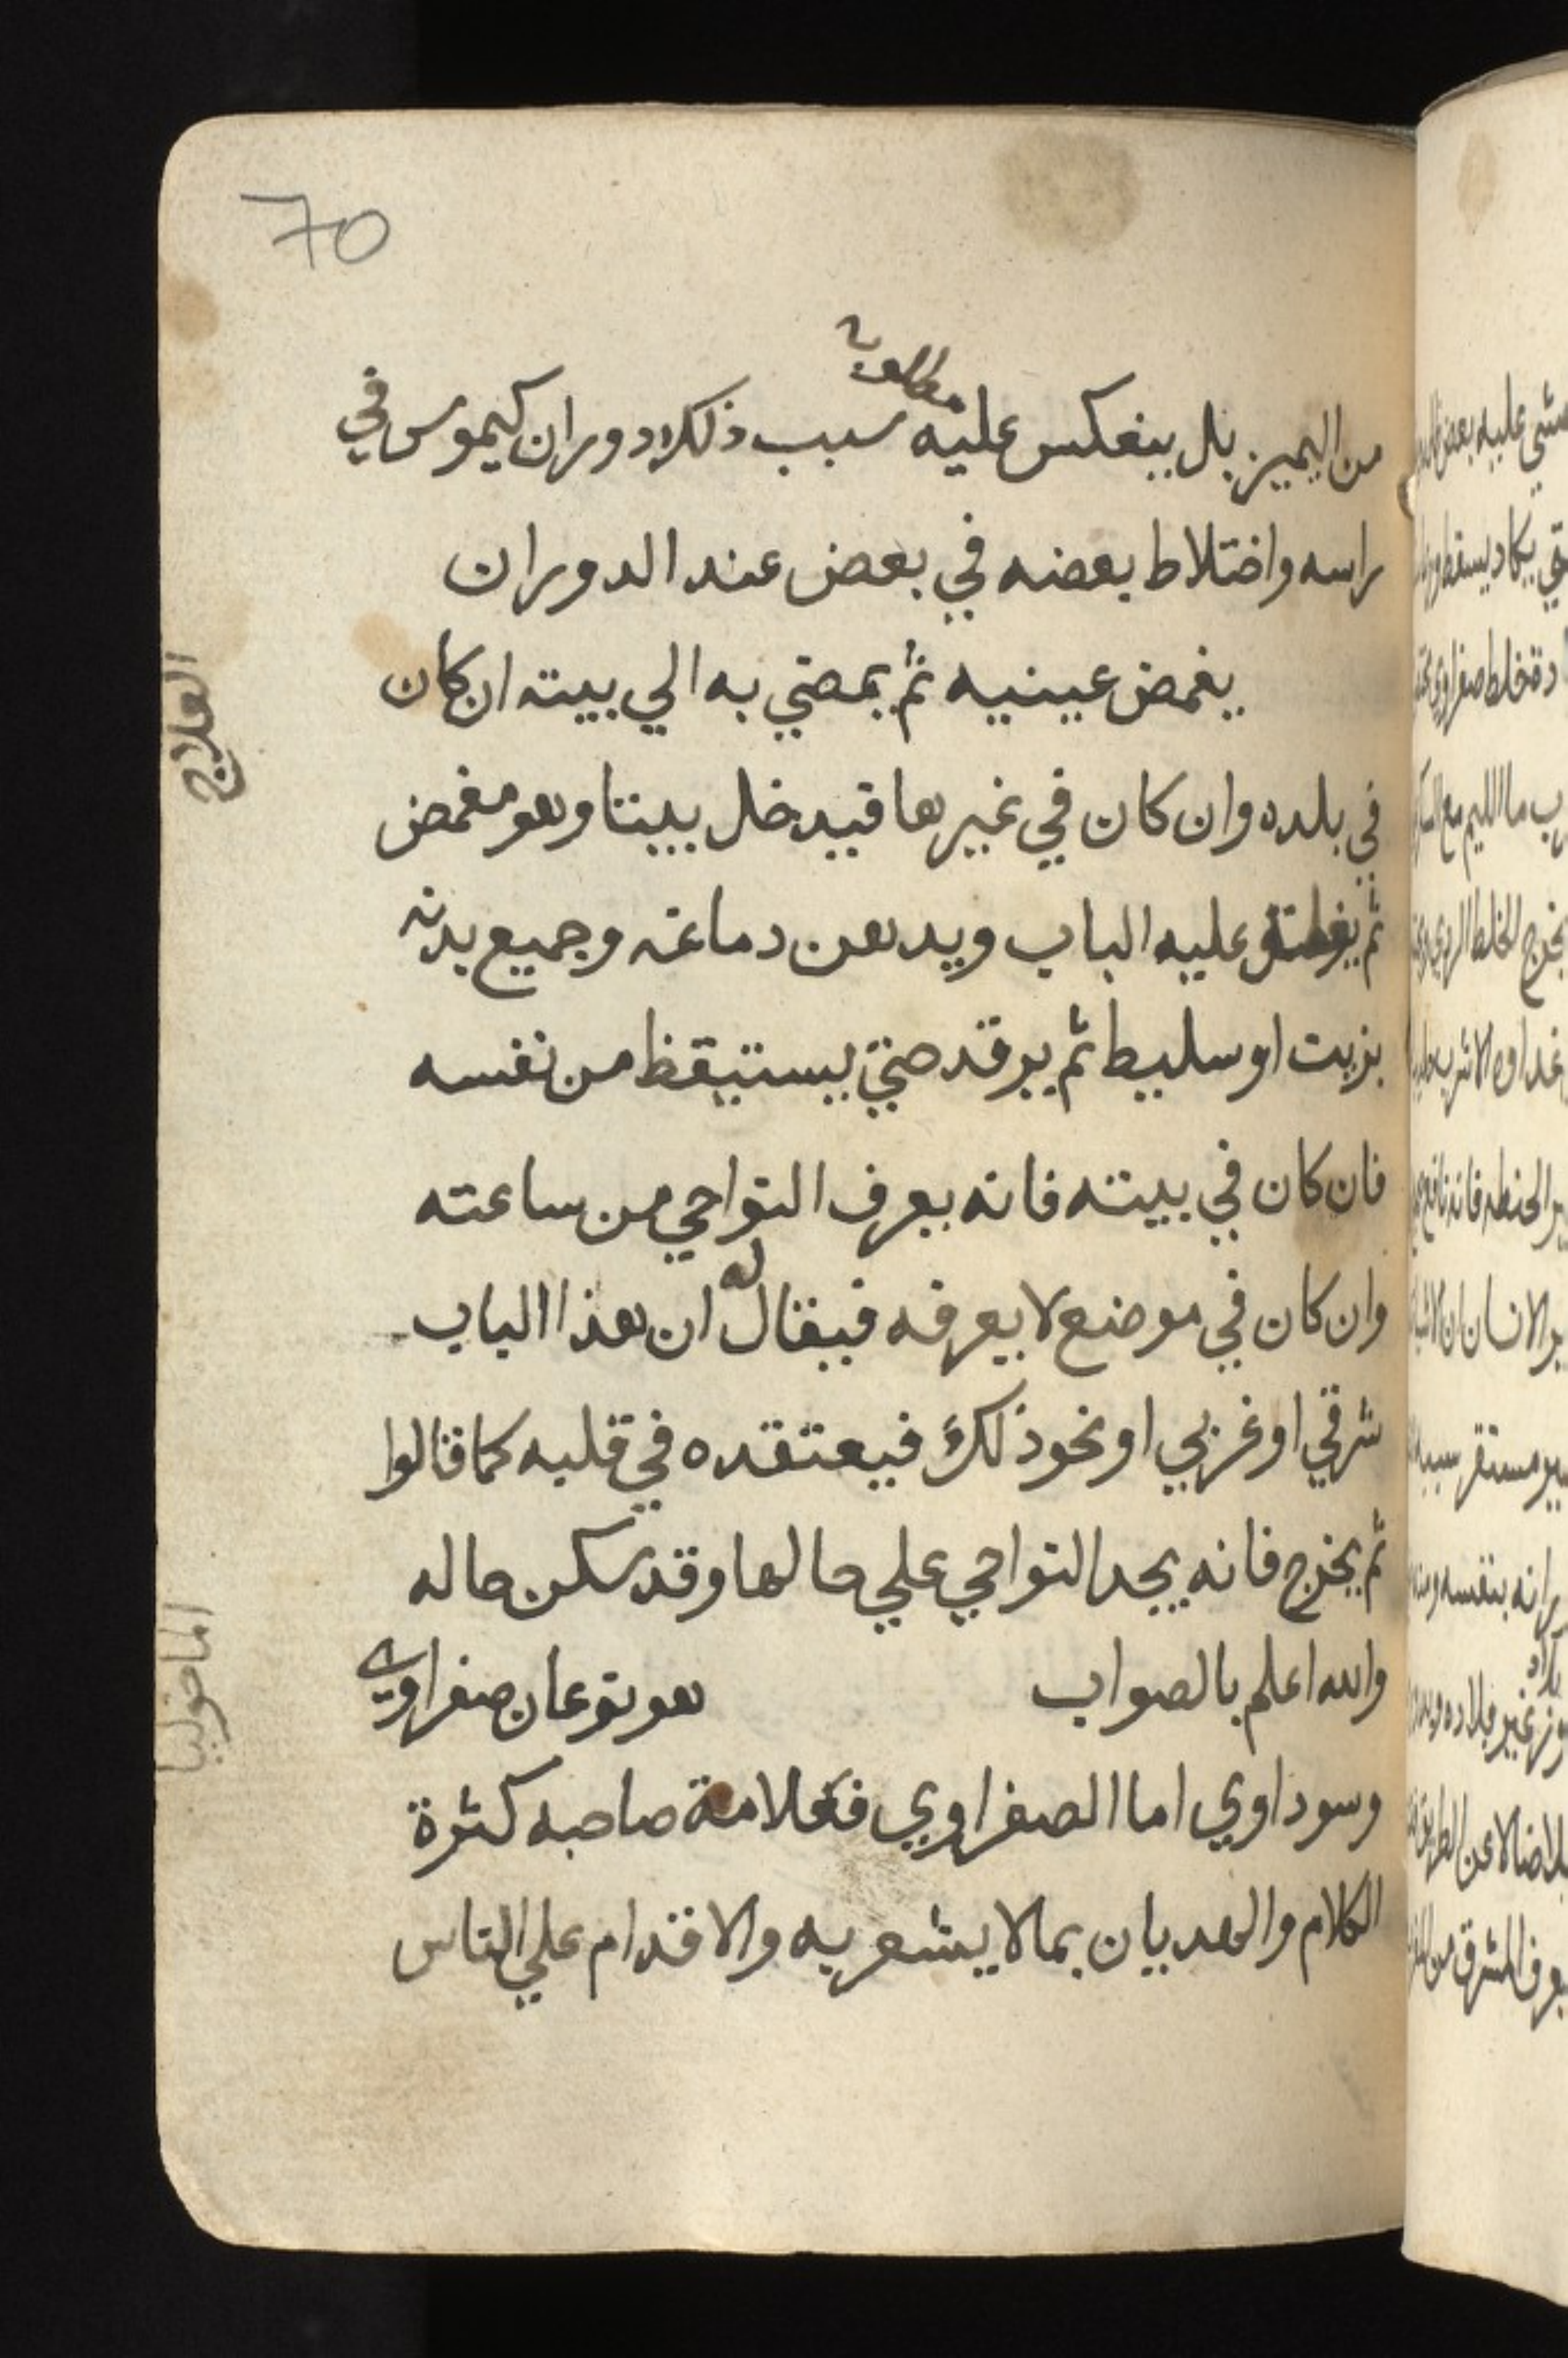 70
من اليميز بل ينعكس عليه سبب ذلك دوران كيموس في
راسه واختلاط بعضه في بعض عند الدوران
يغمض عينيه ثم يمضي به الي بيته ان كان
في بلده وان كان في غيرها فيدخل بيتا وهو مغمض
ثم يغلق عليه الباب ويدهن دماغه وجميع بدنه
بزيت او سليط ثم يرقد حتي يستيقظ من نفسه
فان كان في بيته فانه يعرف النواحي من ساعته
وان كان في موضع لا يعرفه فيقال له ان هذا الباب
شرقي او غربي او نحو ذلك فيعتقده في قلبه كما قالوا
ثم يخرج فانه يجد النواحي علي حالها وقد سكن حاله
والله اعلم بالصواب هو نوعان صفراوي
وسوداوي اما الصفراوي فعلامة صاحبه كثرة
الكلام والهديان بما لا يشعر به والاقدام علي الناس
العلاج
الماخوليا